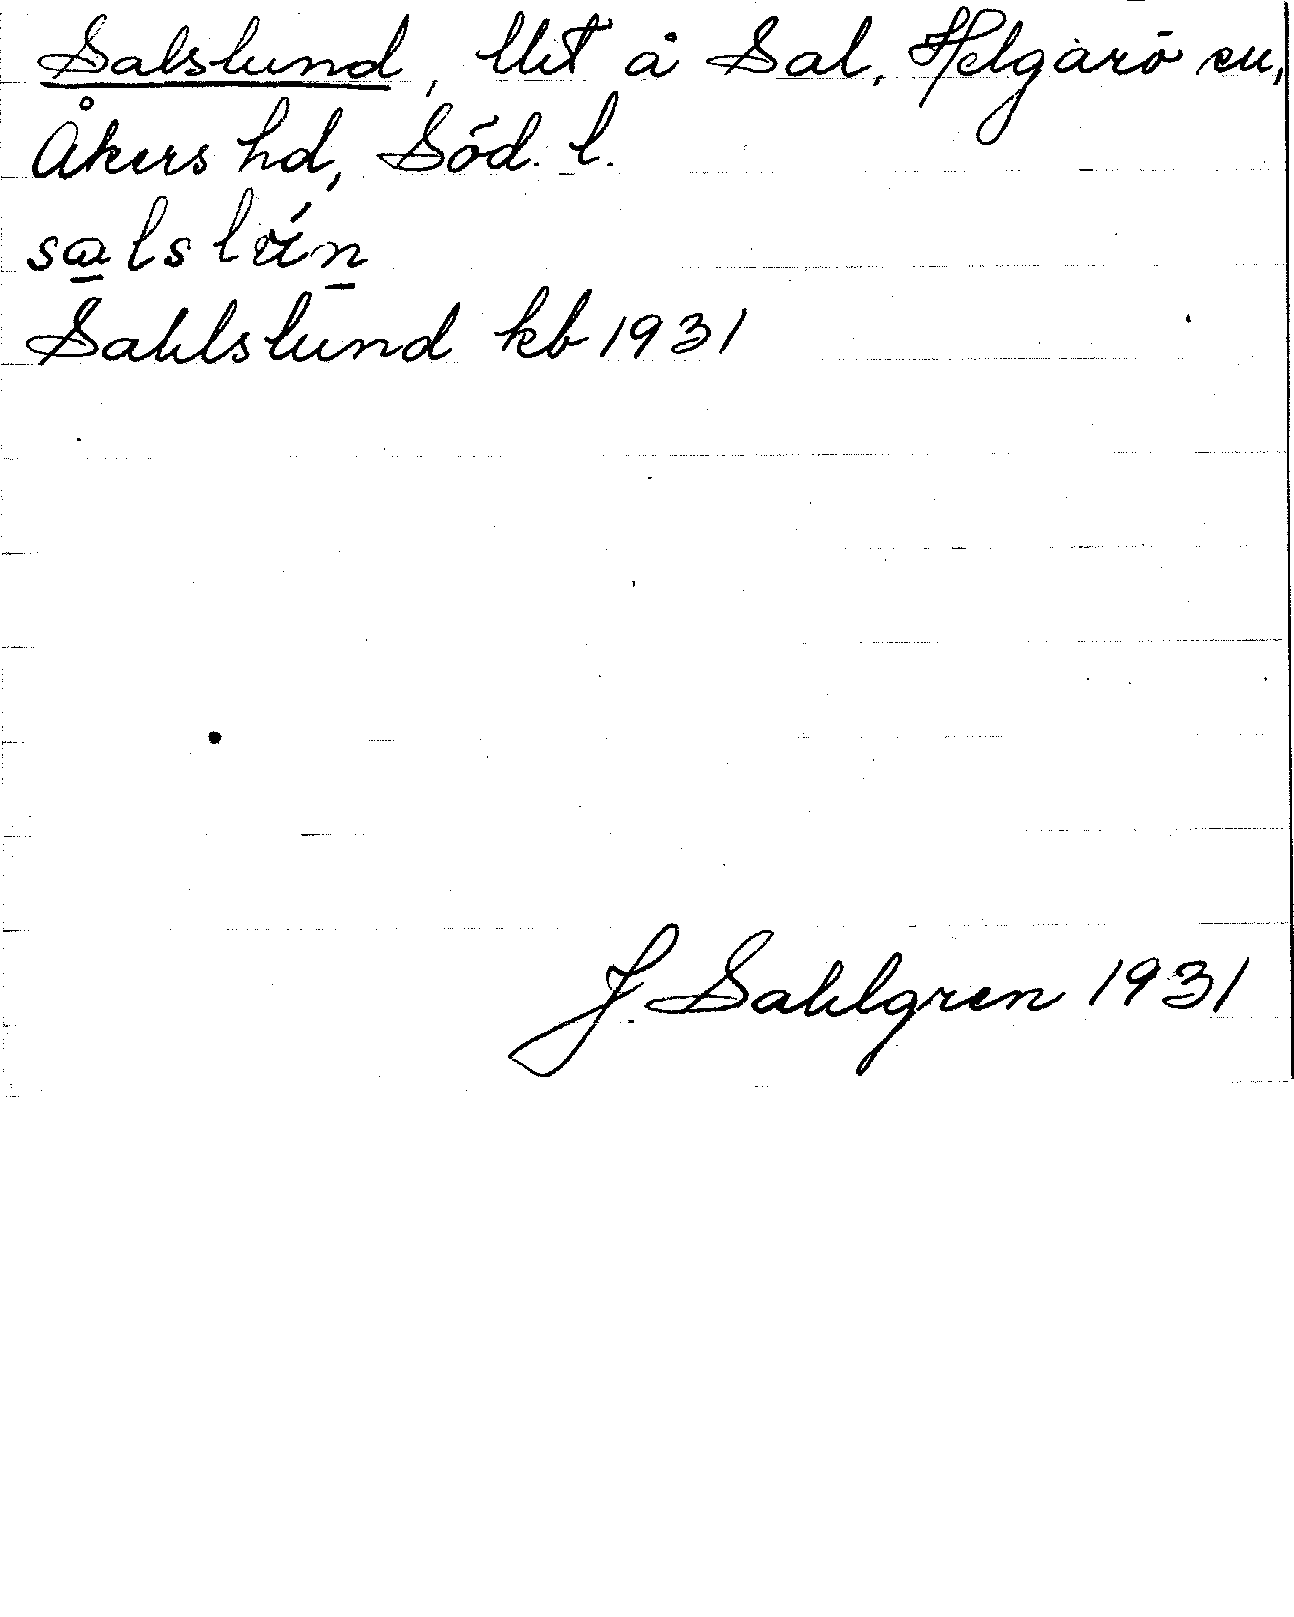 Salslund, lht å Sal, Helgarö sn,
Åkers hd, Söd. l.
Sahlslund kb 1931
J. Sahlgren 1931